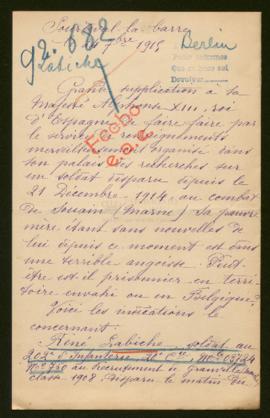 92.882
Labiche
Berlin
Pour informer
Devolver
1915
Grande supplication à Sa
Majesté Alphonse XIII, roi
d'Espagne, de faire faire par
le service de renseignements
merveilleusement organisé dans
son palais, des recherches sur
un soldat disparu depuis le
21 Décembre 1914, au combat
de Souain (Marne). Sa pauvre
mère étant sans nouvelles de
lui depuis ce moment est dans
une terrible angoisse. Peut-
être est-il prisonnier en terri-
toire envahi ou en Belgique?
Voici les indications le
concernant:
René Labiche, soldat au
202e d'Infanterie
No 730 au Recrutement de Granville
classe 1908. Disparu le matin du